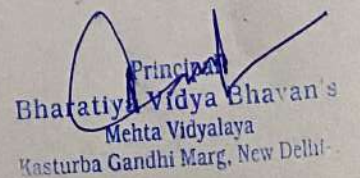 Principal
Bharatiya Vidya Bhavan's
Mehta Vidyalaya
Kasturba Gandhi Marg, New Delhi-